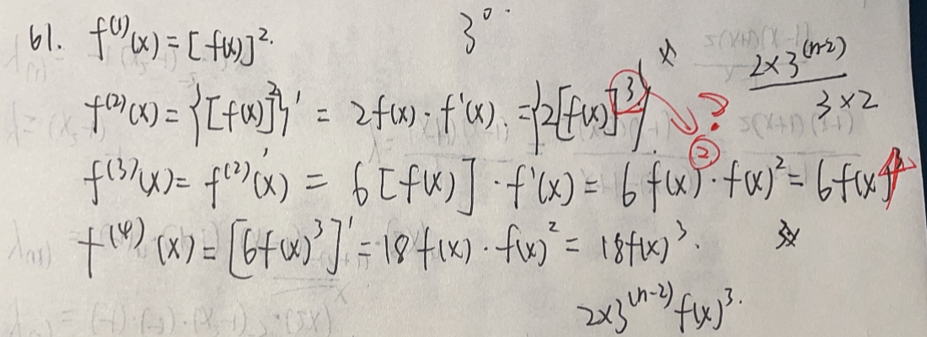 61. f⁽¹⁾(x) = [f(x)]². 3⁰
f⁽²⁾(x) = {[f(x)]²}' = 2f(x)·f'(x). = {2[f(x)]³} ? ② 2×3⁽ⁿ⁻²⁾ / 3×2
f⁽³⁾(x) = f⁽²⁾'(x) = 6[f(x)]·f'(x) = 6f(x)·f(x)² = 6f(x)³
f⁽⁴⁾(x) = [6f(x)³]' = 18f(x)·f(x)² = 18f(x)³.
2×3⁽ⁿ⁻²⁾f(x)³.